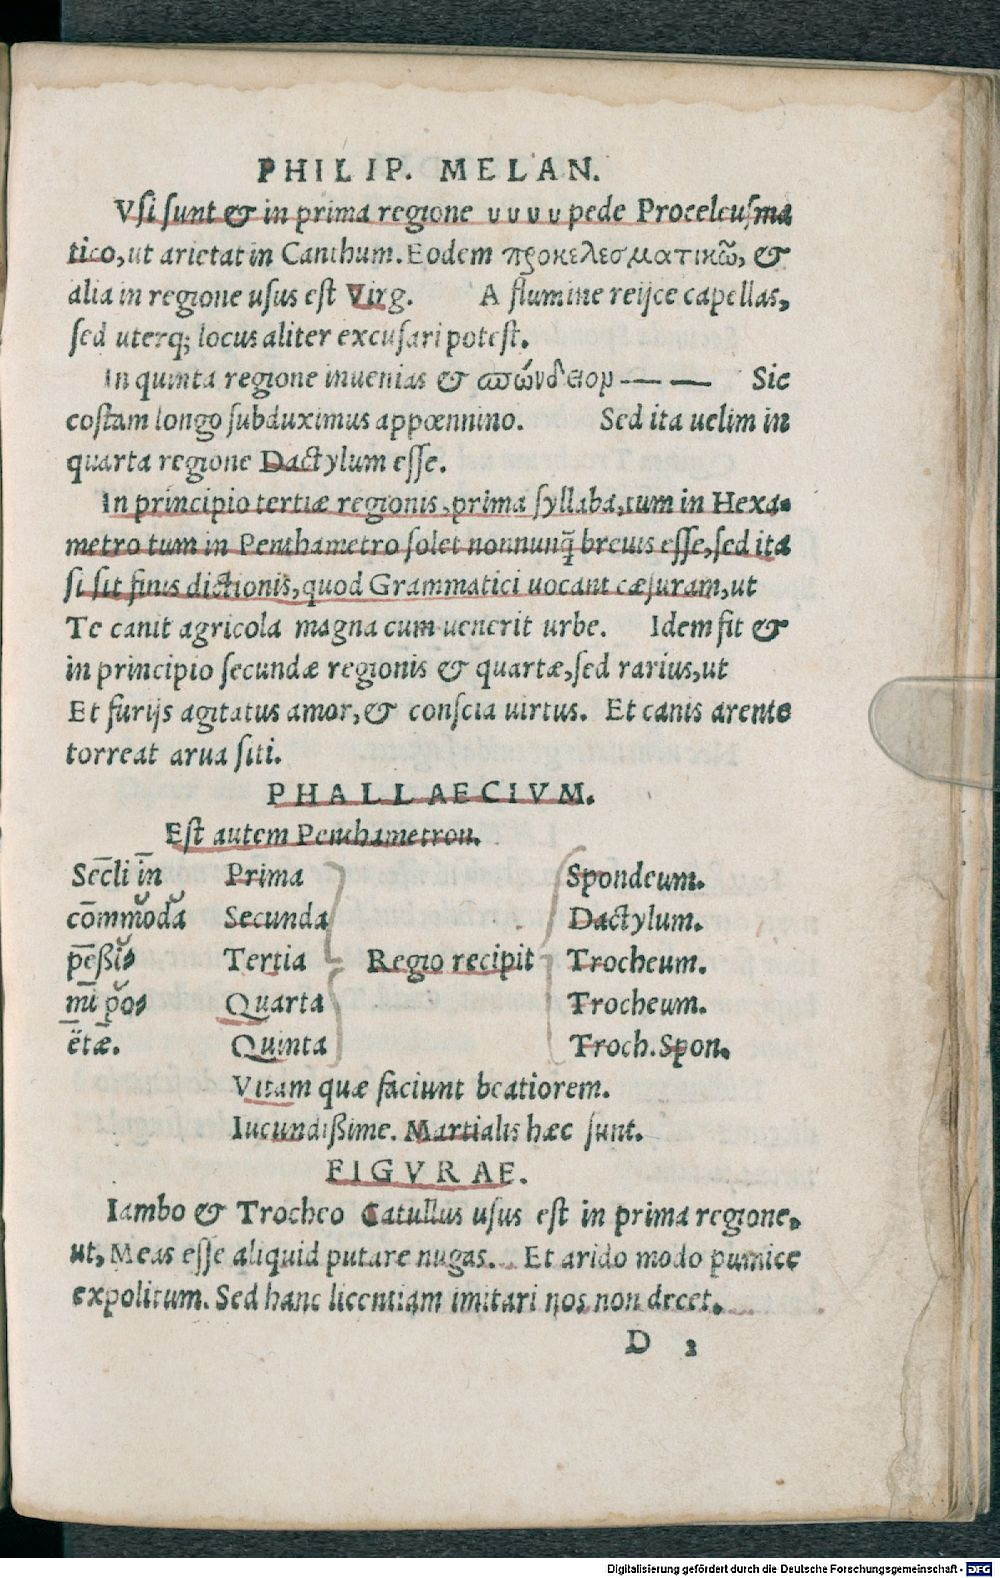 PHILIP. MELAN.
Vsi sunt & in prima regione υ υ υ υ pede Proceleusma
tico, ut arietat in Canthum. Eodem προκελεσματικῶ, &
alia in regione usus est Virg. A flumine reijce capellas,
sed uterq; locus aliter excusari potest.
In quinta regione inuenias & σπώνδειον — — Sic
costam longo subduximus appœnnino. Sed ita uelim in
quarta regione Dactylum esse.
In principio tertiæ regionis, prima syllaba, tum in Hexa-
metro tum in Penthametro solet nonnunq̃ breuis esse, sed ita
si sit finis dictionis, quod Grammatici uocant cæsuram, ut
Te canit agricola magna cum uenerit urbe. Idem fit &
in principio secundæ regionis & quartæ, sed rarius, ut
Et furijs agitatus amor, & conscia uirtus. Et canis arente
torreat arua siti.
PHALLAECIVM.
Est autem Penthametron.
Sec̄li īn Prima Spondeum.
cōmmŏdă Secunda Dactylum.
pēßĭ- Tertia Regio recipit Trocheum.
mī pŏ- Quarta Trocheum.
ētæ. Quinta Troch. Spon.
Vitam quæ faciunt beatiorem.
Iucundißime. Martialis hæc sunt.
FIGVRAE.
Iambo & Trocheo Catullus usus est in prima regione,
ut, Meas esse aliquid putare nugas. Et arido modo pumice
expolitum. Sed hanc licentiam imitari nos non decet.
D 2
Digitalisierung gefördert durch die Deutsche Forschungsgemeinschaft - DFG